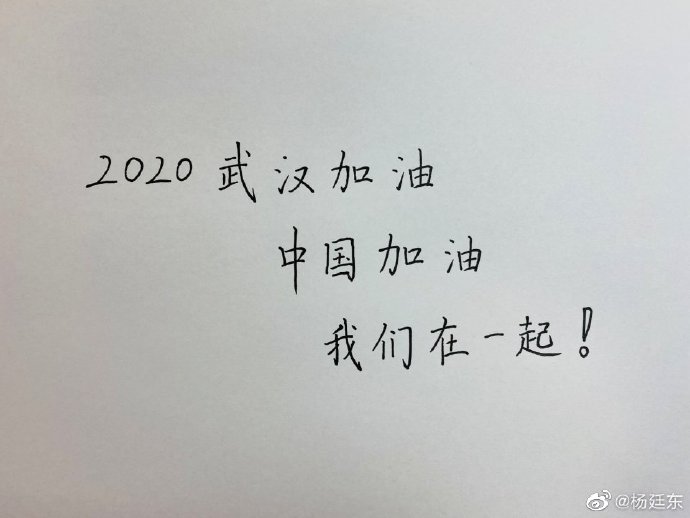 2020 武汉加油
中国加油
我们在一起！
@杨廷东